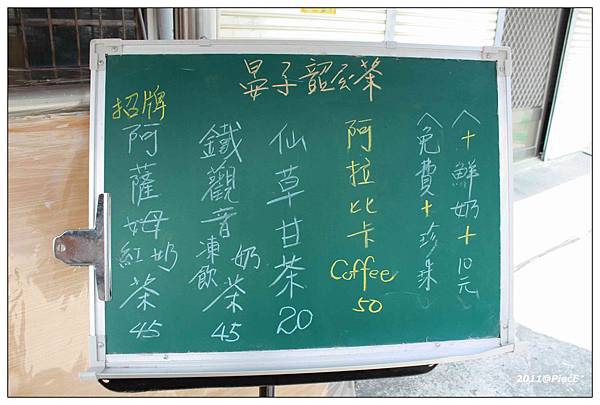 晏子韶公茶
招牌
阿薩姆紅奶茶45
鐵觀音凍飲奶茶45
仙草甘茶20
阿拉比卡Coffee50
︿免費+珍珠
︿+鮮奶+10元
2011@PiecE